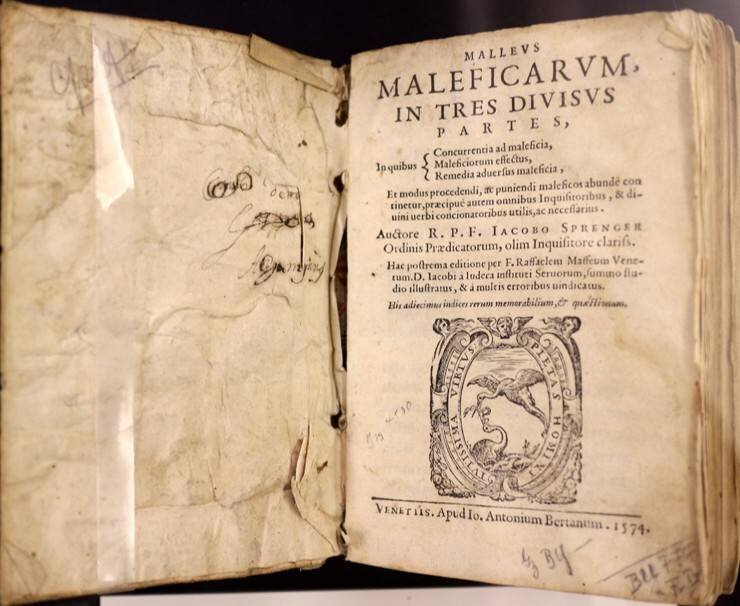 MALLEVS
MALEFICARVM,
IN TRES DIVISVS
PARTES,
In quibus { Concurrentia ad maleficia,
Maleficiorum effectus,
Remedia aduersus maleficia,
Et modus procedendi, ac puniendi maleficos abundè con
tinetur, præcipuè autem omnibus Inquisitoribus, & di-
uini uerbi concionatoribus utilis, ac necessarius.
Auctore R. P. F. IACOBO SPRENGER
Ordinis Prædicatorum, olim Inquisitore clariss.
Hac postrema editione per F. Raffaelem Maffeum Vene-
tum. D. Iacobi à Iudeca instituti Seruorum, summo stu-
dio illustratus, & à multis erroribus uindicatus.
His adiecimus indices rerum memorabilium, & quæstionum.
PIETAS HOMIN
VIRTVS
VENETIIS. Apud Io. Antonium Bertanum. 1574.